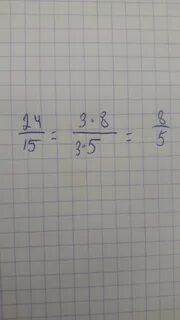 24/15 = 3·8/3·5 = 8/5